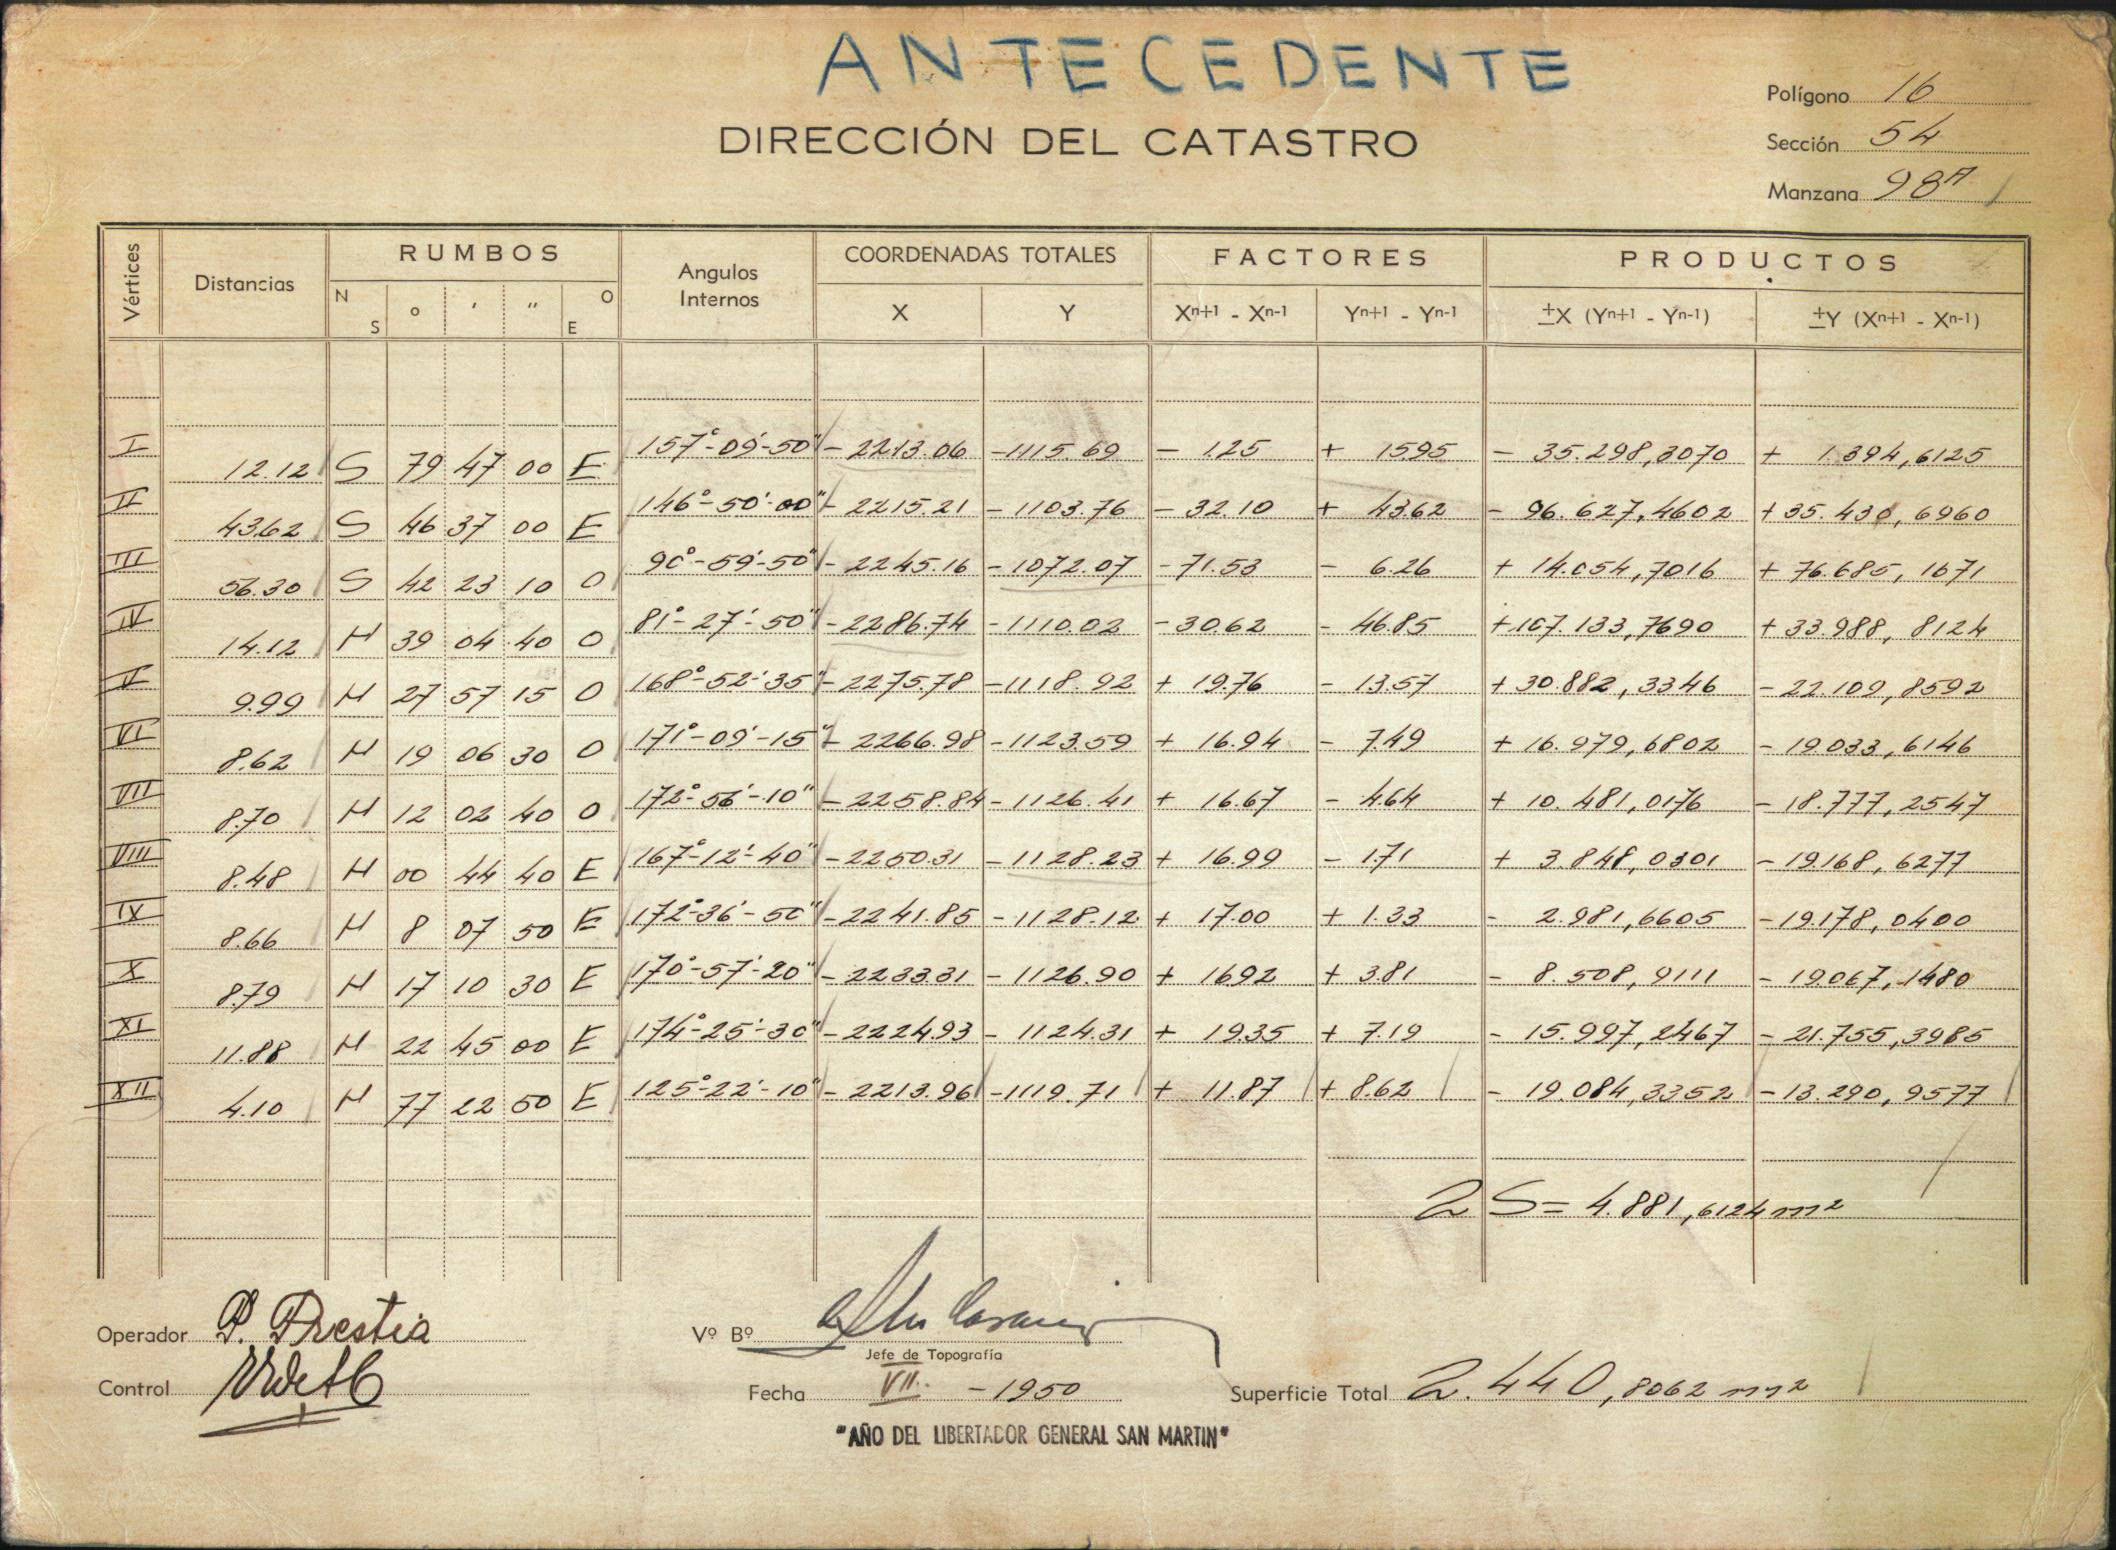 ANTECEDENTE
DIRECCIÓN DEL CATASTRO
Polígono 16
Sección 54
Manzana 98A
Vértices Distancias RUMBOS Angulos Internos COORDENADAS TOTALES FACTORES PRODUCTOS
N S ° ' " O E X Y Xn+1 - Xn-1 Yn+1 - Yn-1 ±X (Yn+1 - Yn-1) ±Y (Xn+1 - Xn-1)
I 12.12 S 79 47 00 E 157°-09'-50" - 2213.06 - 1115.69 - 1.25 + 15.95 - 35.298,3070 + 1.394,6125
II 43.62 S 46 37 00 E 146°-50'-00" - 2215.21 - 1103.76 - 32.10 + 43.62 - 96.627,4602 + 35.430,6960
III 56.30 S 42 23 10 O 90°-59'-50" - 2245.16 - 1072.07 - 71.53 - 6.26 + 14.054,7016 + 76.685,1671
IV 14.12 N 39 04 40 O 81°-27'-50" - 2286.74 - 1110.02 - 30.62 - 46.85 + 107.133,7690 + 33.988,8124
V 9.99 N 27 57 15 O 168°-52'-35" - 2275.78 - 1118.92 + 19.76 - 13.57 + 30.882,3346 - 22.109,8592
VI 8.62 N 19 06 30 O 171°-09'-15" - 2266.98 - 1123.59 + 16.94 - 7.49 + 16.979,6802 - 19.033,6146
VII 8.70 N 12 02 40 O 172°-56'-10" - 2258.84 - 1126.41 + 16.67 - 4.64 + 10.481,0176 - 18.777,2547
VIII 8.48 N 00 44 40 E 167°-12'-40" - 2250.31 - 1128.23 + 16.99 - 1.71 + 3.848,0301 - 19.168,6277
IX 8.66 N 8 07 50 E 172°-36'-50" - 2241.85 - 1128.12 + 17.00 + 1.33 - 2.981,6605 - 19.178,0400
X 8.79 N 17 10 30 E 170°-57'-20" - 2233.31 - 1126.90 + 16.92 + 3.81 - 8.508,9111 - 19.067,1480
XI 11.88 N 22 45 00 E 174°-25'-30" - 2224.93 - 1124.31 + 19.35 + 7.19 - 15.997,2467 - 21.755,3985
XII 4.10 N 77 22 50 E 125°-22'-10" - 2213.96 - 1119.71 + 11.87 + 8.62 - 19.084,3352 - 13.290,9577
2 S = 4.881,6124 m2
Operador P. Prestia
Vº Bº
Jefe de Topografía
Control
Fecha VII - 1950
Superficie Total 2.440,8062 m2
"AÑO DEL LIBERTADOR GENERAL SAN MARTIN"